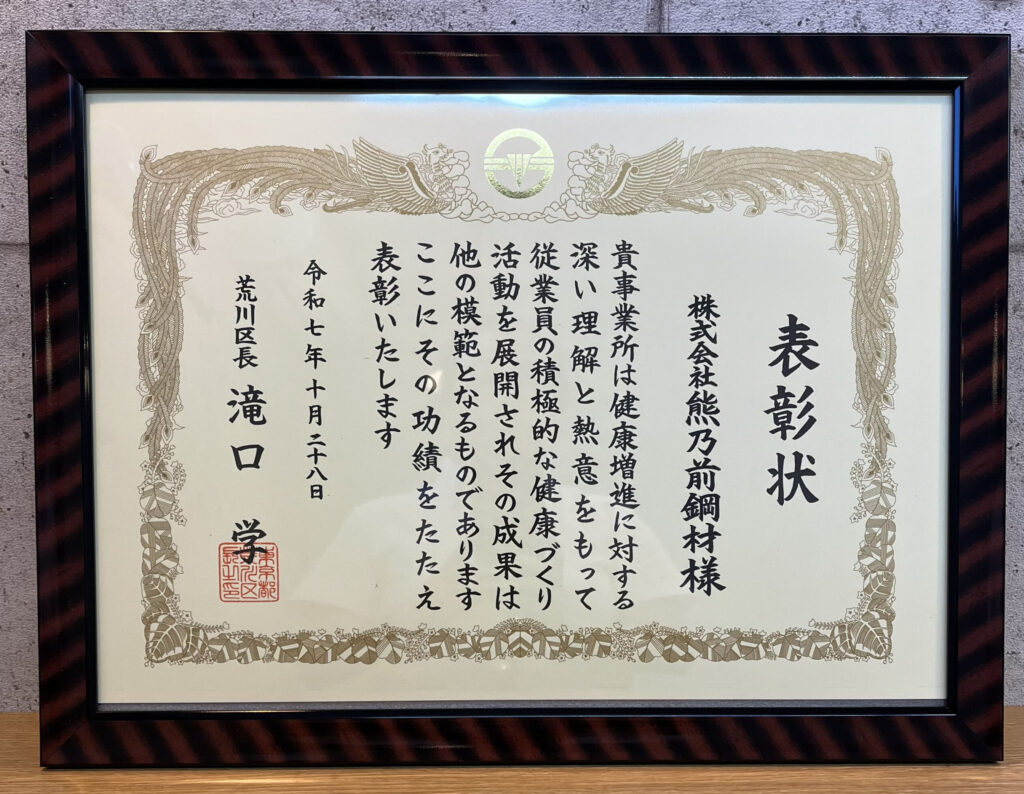 表彰状
株式会社熊乃前鋼材様
貴事業所は健康増進に対する
深い理解と熱意をもって
従業員の積極的な健康づくり
活動を展開されその成果は
他の模範となるものであります
ここにその功績をたたえ
表彰いたします
令和七年十月二十八日
荒川区長 滝口 学